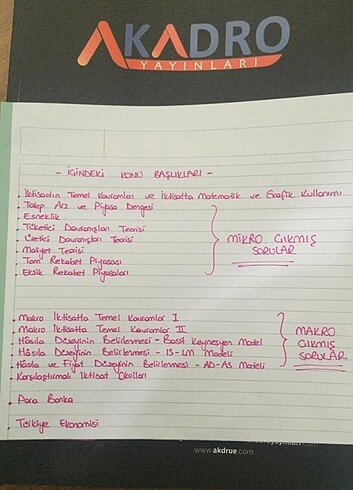 AKADRO
YAYINLARI
- İÇİNDEKİ KONU BAŞLIKLARI -
• İktisadın Temel Kavramları ve İktisatta Matematik ve Grafik Kullanımı
• Talep Arz ve Piyasa Dengesi
• Esneklik
• Tüketici Davranışları Teorisi
• Üretici Davranışları Teorisi
• Maliyet Teorisi
• Tam Rekabet Piyasası
• Eksik Rekabet Piyasaları
MİKRO ÇIKMIŞ
SORULAR
• Makro İktisatta Temel Kavramlar I
• Makro İktisatta Temel Kavramlar II
• Hâsıla Düzeyinin Belirlenmesi - Basit Keynesyen Model
• Hâsıla Düzeyinin Belirlenmesi - IS-LM Modeli
• Hâsıla ve Fiyat Düzeyinin Belirlenmesi - AD-AS Modeli
• Karşılaştırmalı İktisat Okulları
MAKRO
ÇIKMIŞ
SORULAR
• Para Banka
• Türkiye Ekonomisi
www.akdrue.com